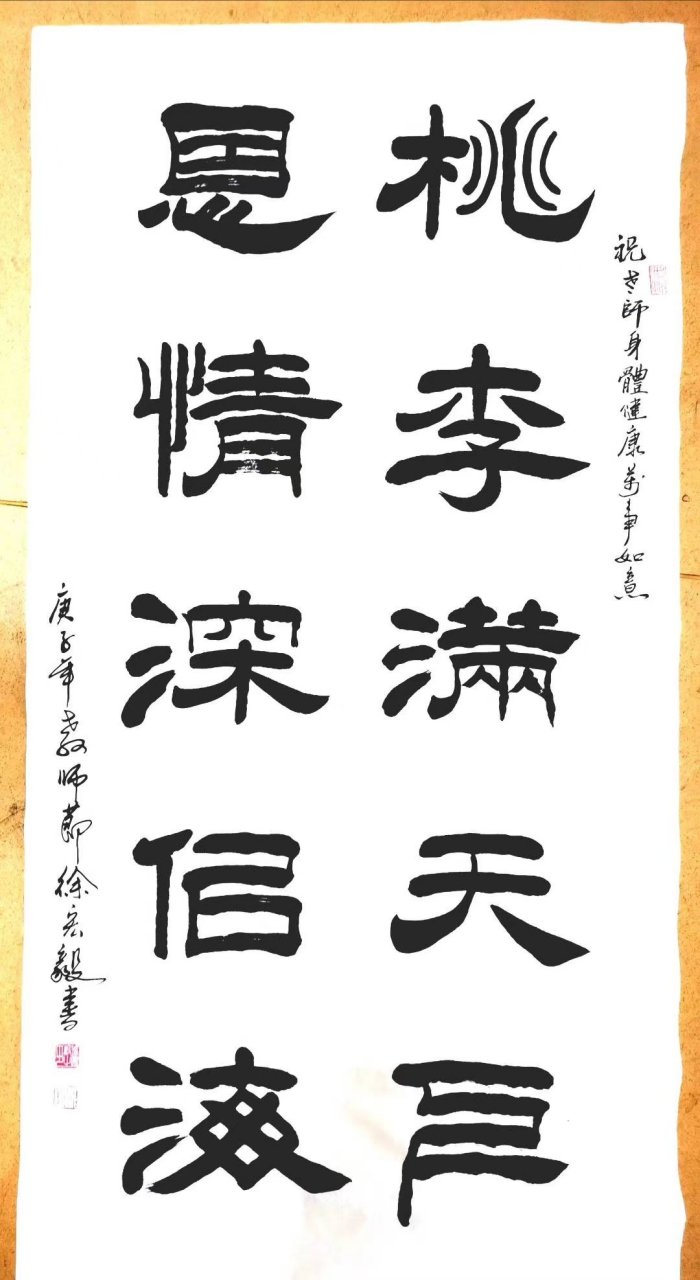 祝老師身體健康萬事如意
桃李滿天
恩情深佀海
庚子年教師節徐宏毅書